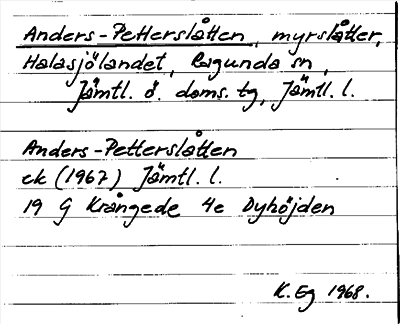 Anders-Petterslåtten, myrslåtter,
Halasjölandet, Ragunda sn,
Jämtl. ö. doms. tg, Jämtl. l.
Anders-Petterslåtten
ek (1967) Jämtl. l.
19 G Krångede 4e Dyhöjden
K. Eg 1968.